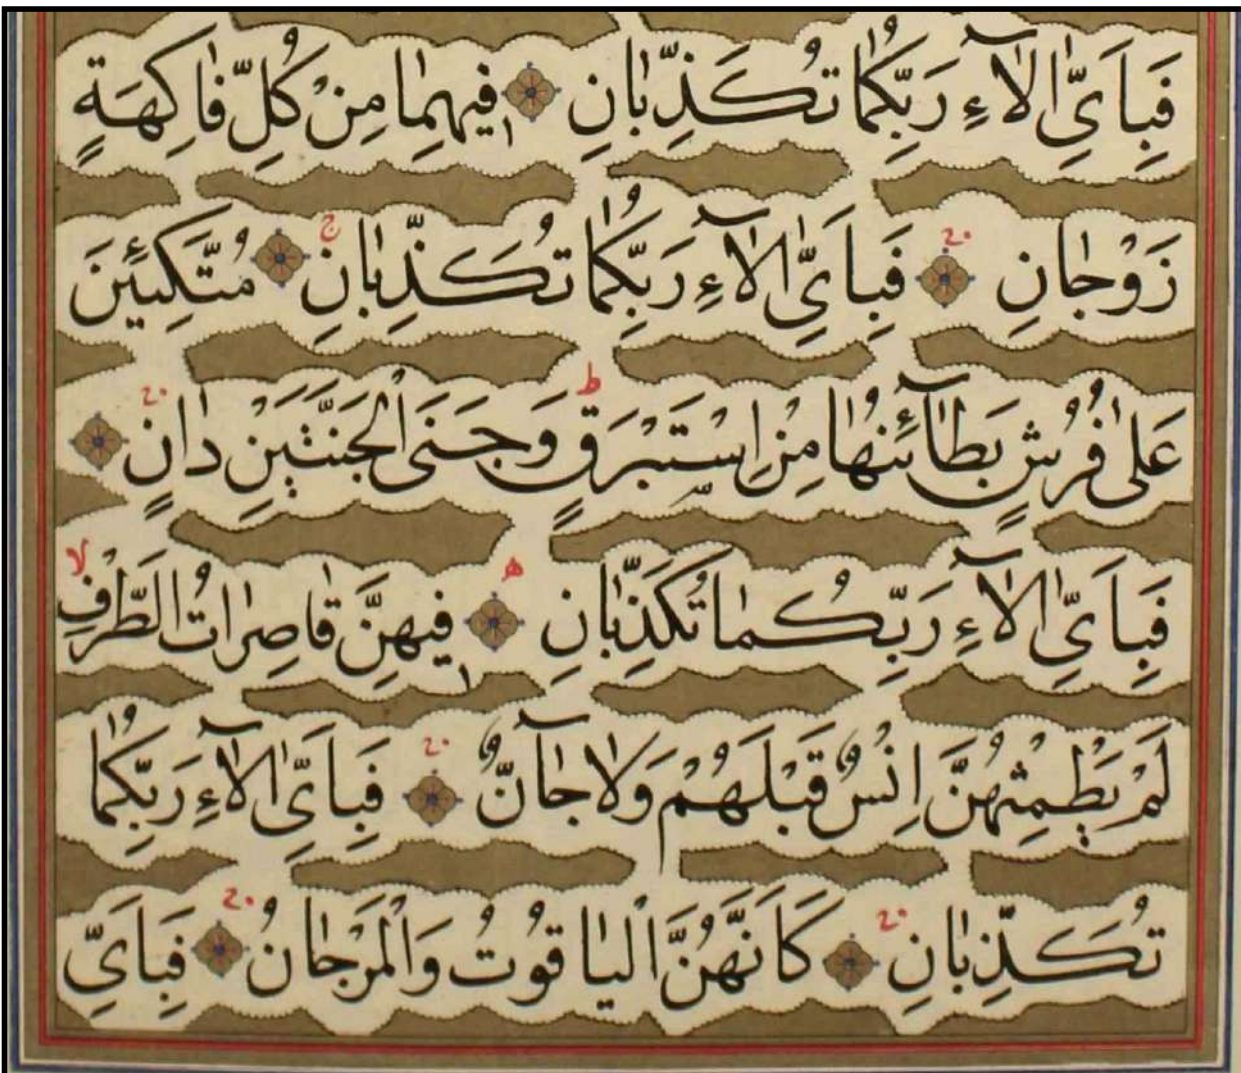 فَبِاَىِّ اٰلَآءِ رَبِّكُمَا تُكَذِّبَانِ فِيهِمٰا مِنْ كُلِّ فٰاكِهَةٍ
زَوْجٰانِ فَبِاَىِّ اٰلَآءِ رَبِّكُمٰا تُكَذِّبٰانِ مُتَّكِـِٔينَ
عَلٰى فُرُشٍ بَطٰآئِنُهٰا مِنْ اِسْتَبْرَقٍ وَجَنَى الْجَنَّتَيْنِ دٰانٍ
فَبِاَىِّ اٰلَآءِ رَبِّكُمٰا تُكَذِّبٰانِ فِيهِنَّ قٰاصِرٰاتُ الطَّرْفِ
لَمْ يَطْمِثْهُنَّ اِنْسٌ قَبْلَهُمْ وَلٰا جٰآنٌّ فَبِاَىِّ اٰلَآءِ رَبِّكُمٰا
تُكَذِّبٰانِ كَاَنَّهُنَّ الْيٰاقُوتُ وَالْمَرْجٰانُ فَبِاَىِّ